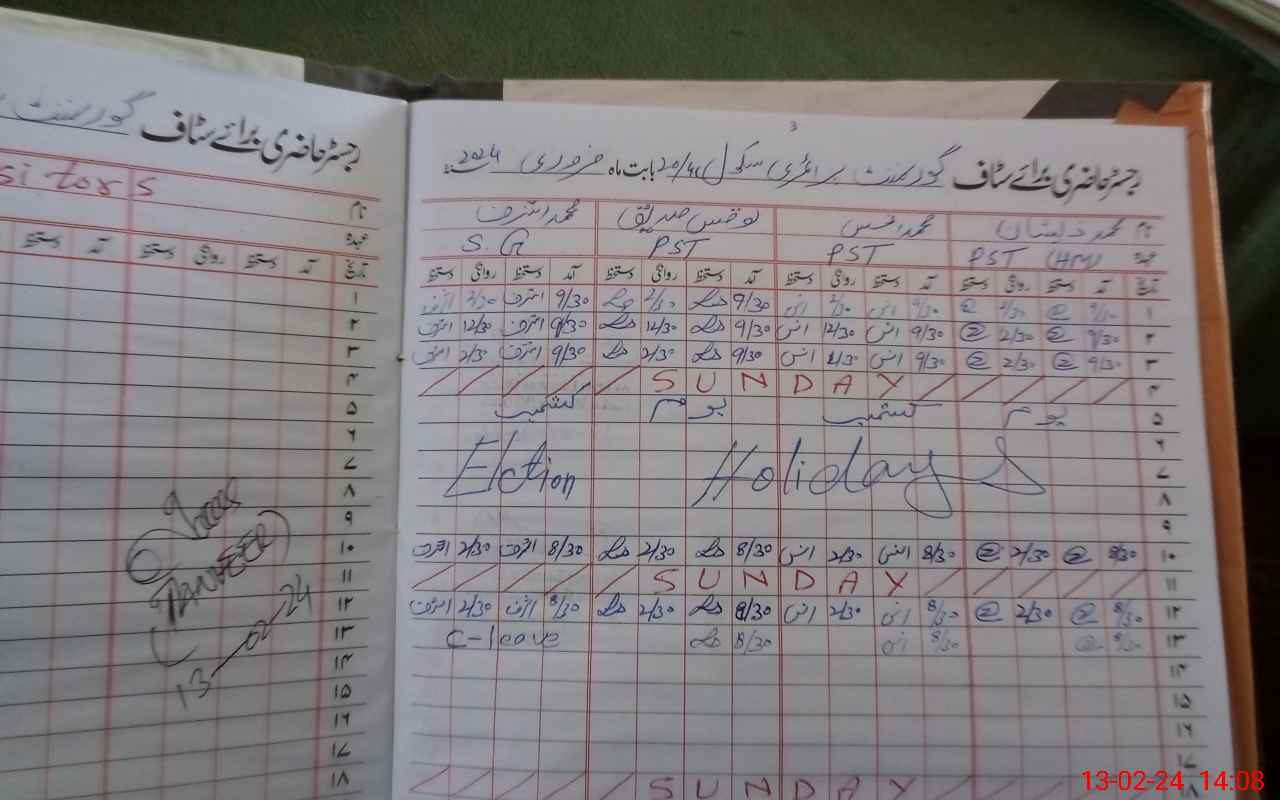 رجسٹر حاضری برائے سٹاف گورنمنٹ
sitors
نام
عہدہ
تاریخ آمد دستخط روانگی دستخط آمد دستخط
۱
۲
۳
۴
۵
۶
۷
۸
۹
۱۰
۱۱
۱۲
۱۳
۱۴
۱۵
۱۶
۱۷
۱۸
(TANVEER)
13-02-24
3
رجسٹر حاضری برائے سٹاف گورنمنٹ پرائمری سکول بابت ماہ فروری 2024ء
نام محمد ذیشان محمد انس صدیق محمد اشرف
عہدہ PST (HM) PST PST S.G
تاریخ آمد دستخط روانگی دستخط آمد دستخط روانگی دستخط آمد دستخط روانگی دستخط آمد دستخط روانگی دستخط
۱ 9/30 2/30 9/30 انس 2/30 انس 9/30 2/30 9/30 اشرف 2/30 اشرف
۲ 9/30 12/30 9/30 انس 12/30 انس 9/30 12/30 9/30 اشرف 12/30 اشرف
۳ 9/30 2/30 9/30 انس 2/30 انس 9/30 2/30 9/30 اشرف 2/30 اشرف
۴ SUNDAY
۵ یوم کشمیر یوم کشمیر
۶
۷ Elction Holidays
۸
۹
۱۰ 8/30 2/30 8/30 انس 2/30 انس 8/30 2/30 8/30 اشرف 2/30 اشرف
۱۱ SUNDAY
۱۲ 8/30 2/30 8/30 انس 2/30 انس 8/30 2/30 8/30 اشرف 2/30 اشرف
۱۳ 8/30 8/30 انس 8/30 C-leave
۱۴
۱۵
۱۶
۱۷
۱۸ SUNDAY
13-02-24 14:08